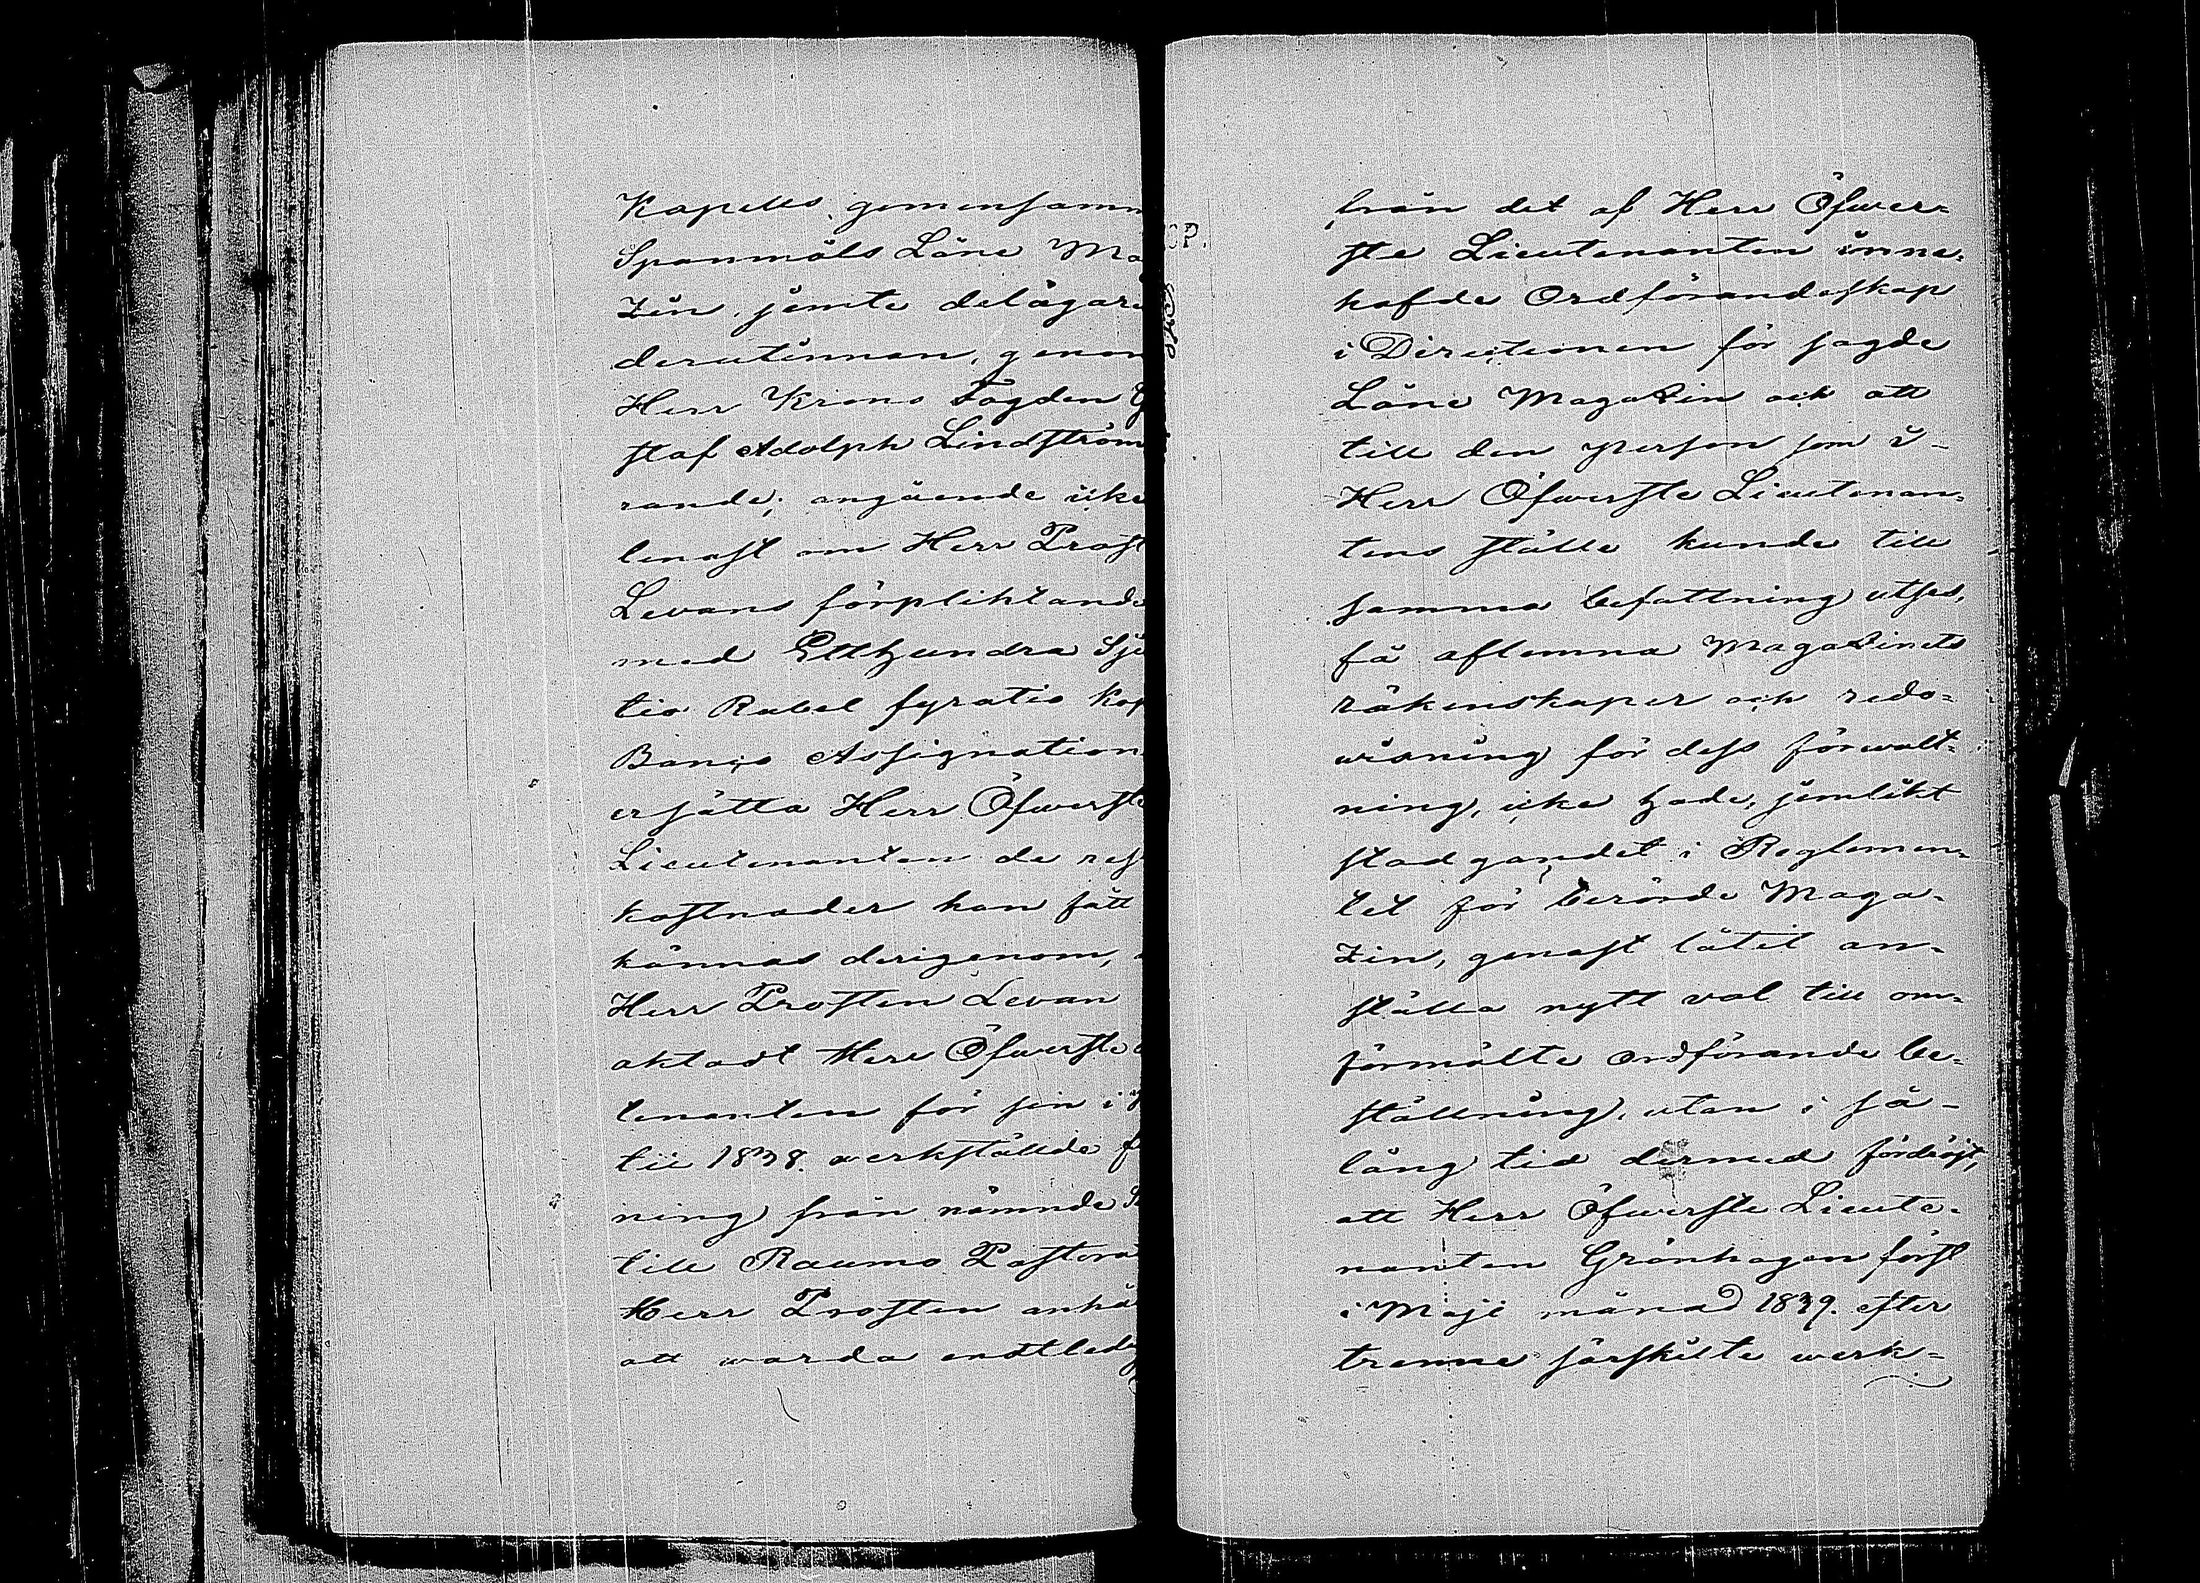 Kapells gemensamm
Spanmåls Låne Ma
Zin, jemte delägare
derutinnan, genom
Herr Krono Fogden G
staf Adolph Lindström
rande; angående icke
lenast om Herr Prost
Levans förpliktande
med Etthundra Sju
tio Rubel fyratio Kop
Banco Assignation
ersätta Herr Öfwerste
Lieutenanten de res
kostnader han fått
kännas derigenom,
Herr Prosten Levan
aktadt Herr Öfwerste
tenanten för sin i
till 1838. werkställde f
ning från nämnde
till Raumo Pastora
Herr Prosten anhå
att warda entledi
från det af Herr Öfwer=
ste Lieutenanten inne=
hafde Ordförandeskap
i Directionen för sagde
Låne Magazin och att
till den person som i
Herr Öfwerste Lieutenan=
tens ställe kunde till
samma befattning utses,
få aflemna Magazinets
räkenskaper och redo=
wisning för dess förwalt=
ning, icke hade, jemlikt
stadgandet i Reglemen=
tet för berörde Maga=
Zin, genast låtit an=
ställa nytt val till om=
förmälte ordförande be=
ställning, utan i så=
lång tid dermed fördröjt,
att Herr Öfwerste Lieute=
nanten Grönhagen först
i Maji månad 1839. efter
trenne särskilte werk=